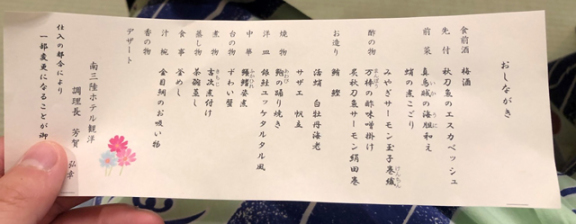 おしながき
食前酒 梅酒
先付 秋刀魚のエスカベッシュ
前菜 真烏賊の海胆和え
蛸の煮こごり
みやぎサーモン玉子巻繊
酢の物 万棒の酢味噌掛け
炙秋刀魚サーモン絹田巻
お造り 鮪 鰹
活蛸 白牡丹海老
サザエ 帆立
焼物 鮑の踊り焼き
洋皿 銀鮭ユッケタルタル風
中華 鱶鰭姿煮
台の物 ずわい蟹
煮物 吉次煮付け
蒸し物 茶碗蒸し
食事 釜めし
汁椀 金目鯛のお吸い物
香の物
デザート
南三陸ホテル観洋
調理長 芳賀
仕入の都合により
一部変更になることが御